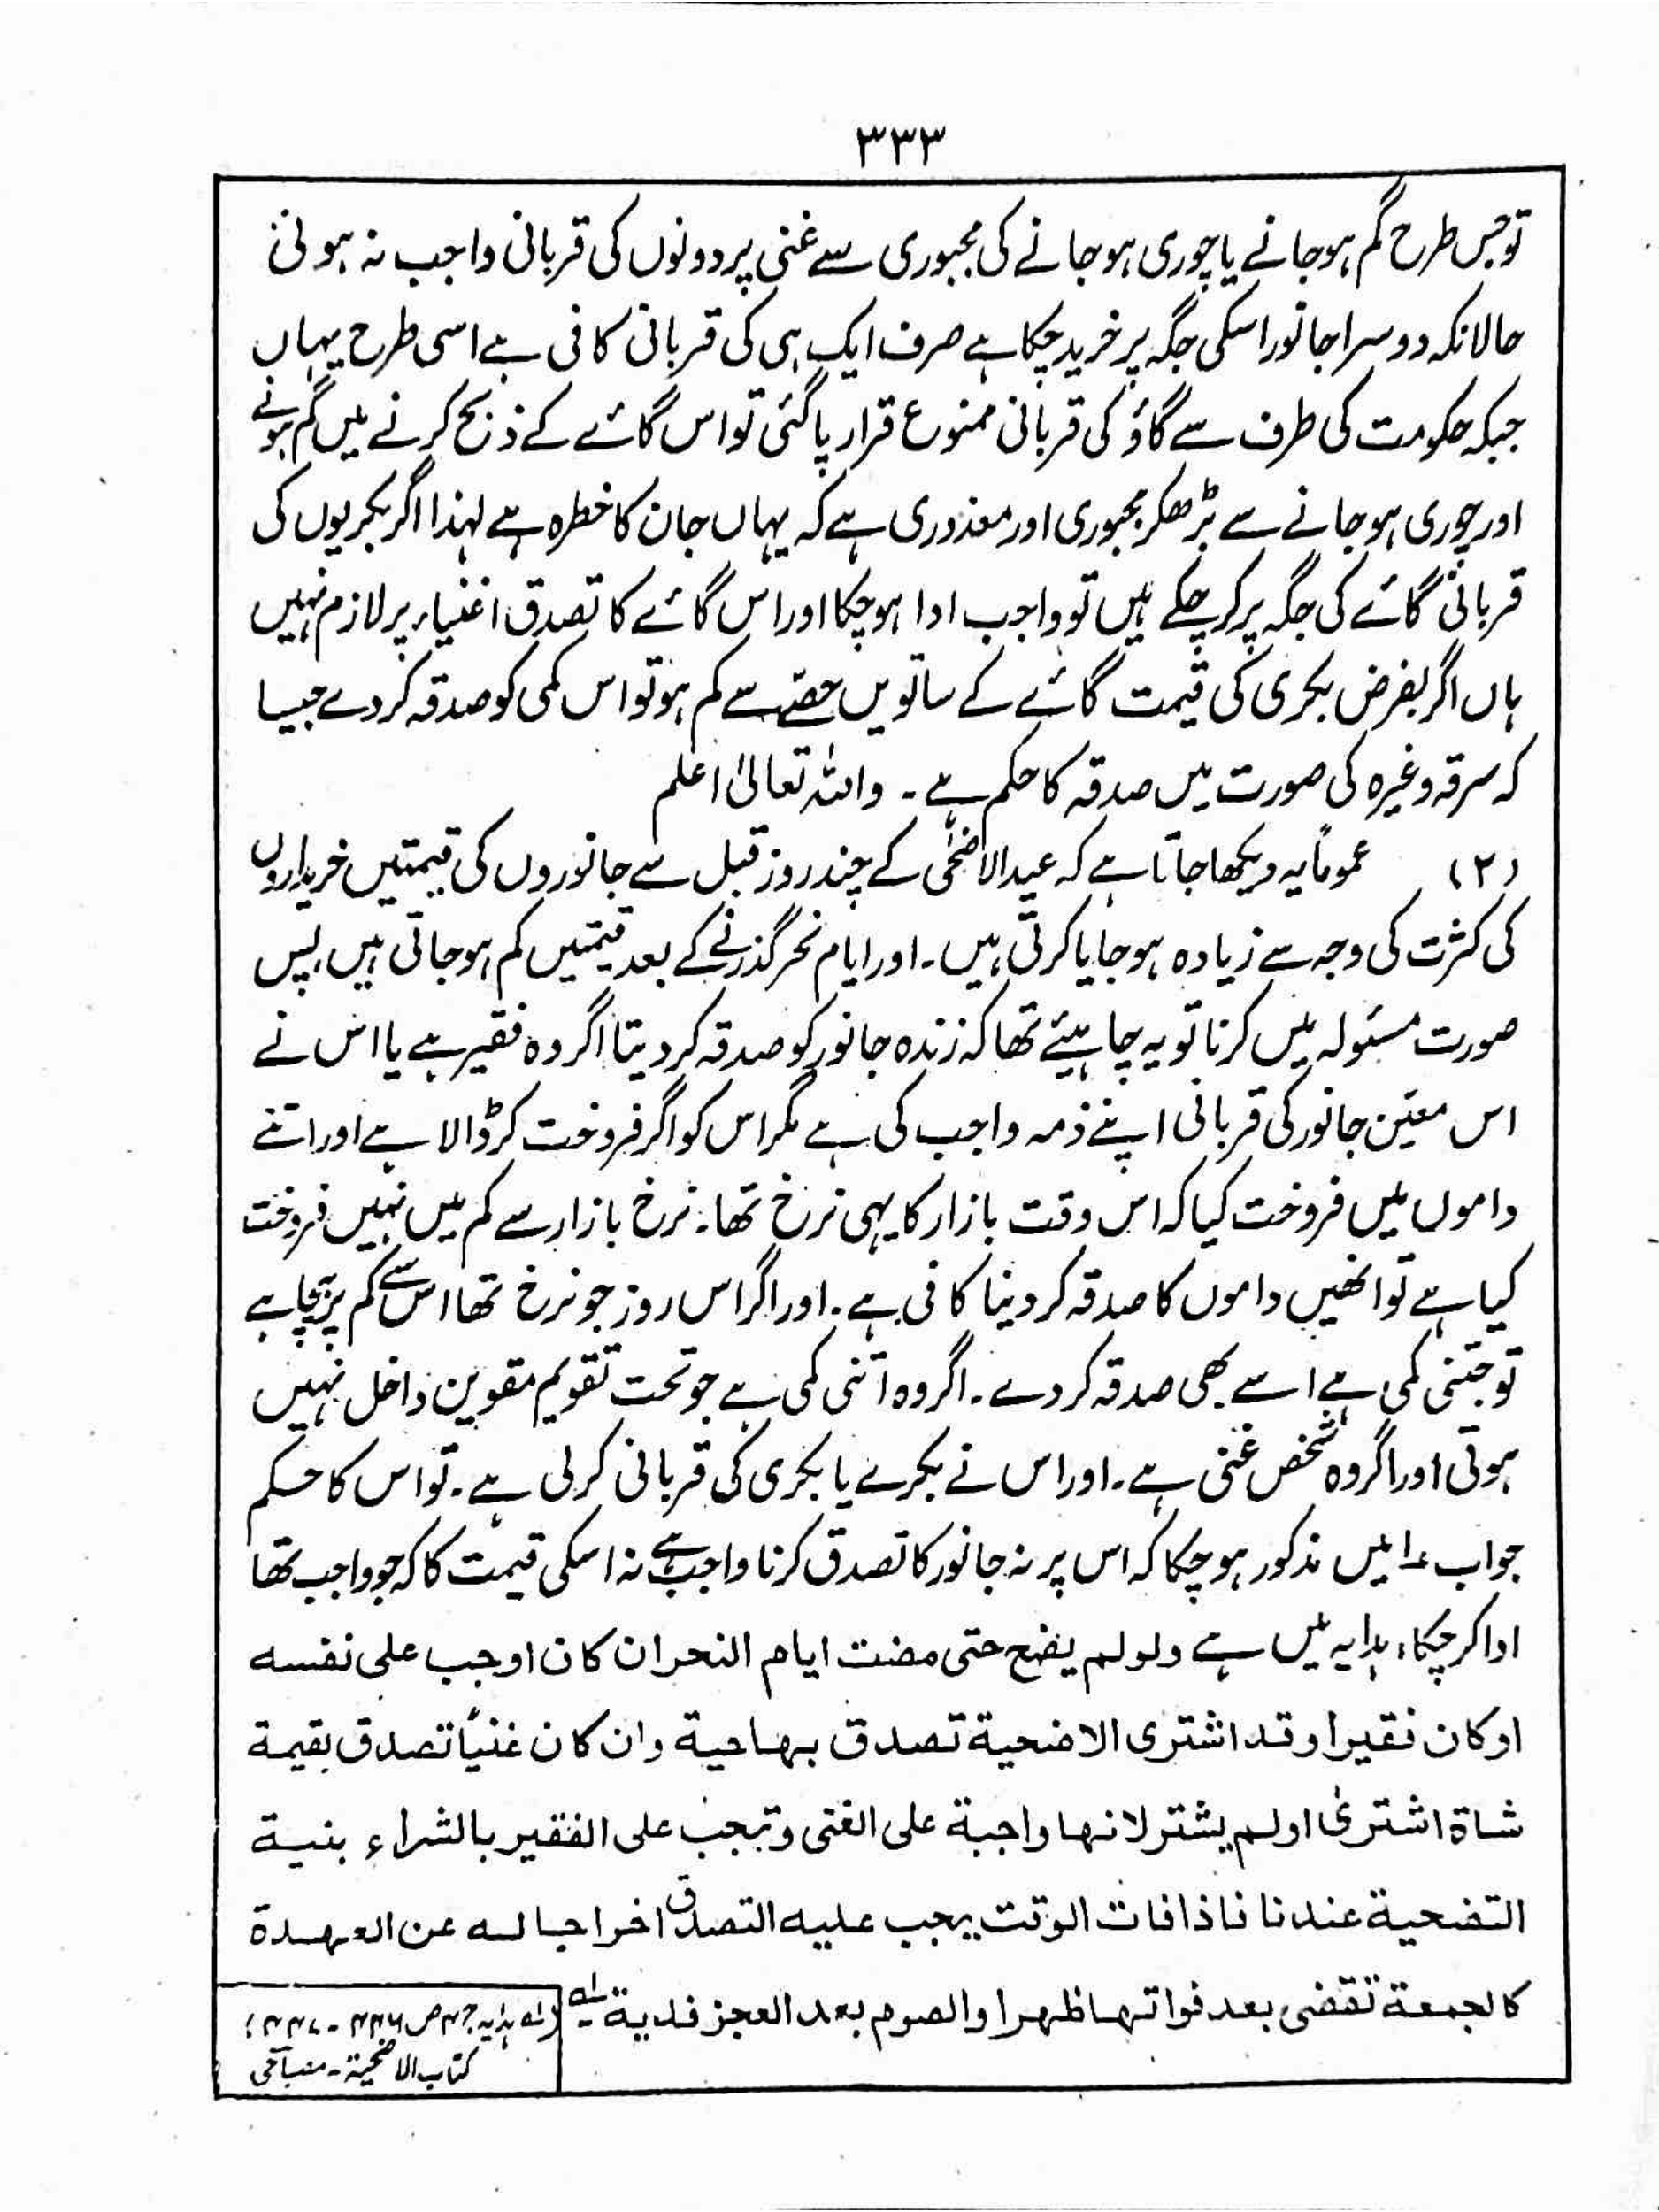 ۳۳۳
توجس طرح گم ہوجانے یا چوری ہوجانے کی مجبوری سے غنی پر دونوں کی قربانی واجب نہ ہوئی
حالانکہ دوسرا جانور اسکی جگہ پر خرید چکا ہے صرف ایک ہی کی قربانی کافی ہے اسی طرح یہاں
جبکہ حکومت کی طرف سے گاؤ کی قربانی ممنوع قرار پاگئی تو اس گائے کے ذبح کرنے میں گم ہونے
اور چوری ہوجانے سے بڑھکر مجبوری اور معذوری ہے کہ یہاں جان کا خطرہ ہے لہٰذا اگر بکریوں کی
قربانی گائے کی جگہ پر کرچکے ہیں تو واجب ادا ہوچکا اور اس گائے کا تصدق اغنیاء پر لازم نہیں
ہاں اگر بفرض بکری کی قیمت گائے کے ساتویں حصے سے کم ہو تو اس کمی کو صدقہ کردے جیسا
کہ سرقہ وغیرہ کی صورت میں صدقہ کا حکم ہے ۔ واللہ تعالیٰ اعلم
(۲) عموماً یہ دیکھا جاتا ہے کہ عیدالاضحٰی کے چند روز قبل سے جانوروں کی قیمتیں خریداروں
کی کثرت کی وجہ سے زیادہ ہوجایا کرتی ہیں۔ اور ایام نحر گذرنے کے بعد قیمتیں کم ہوجاتی ہیں، پس
صورت مسئولہ میں کرنا تو یہ چاہیئے تھا کہ زندہ جانور کو صدقہ کردیتا اگر وہ فقیر ہے یا اس نے
اس معیّن جانور کی قربانی اپنے ذمہ واجب کی ہے مگر اس کو اگر فروخت کرڈالا ہے اور اتنے
داموں میں فروخت کیا کہ اس وقت بازار کا یہی نرخ تھا۔ نرخ بازار سے کم میں نہیں فروخت
کیا ہے تو انھیں داموں کا صدقہ کردینا کافی ہے۔ اور اگر اس روز جو نرخ تھا اس سے کم پر بیچا ہے
تو جتنی کمی ہے اسے بھی صدقہ کردے۔ اگر وہ اتنی کمی ہے جو تحت تقویم مقومین داخل نہیں
ہوتی اور اگر وہ شخص غنی ہے۔ اور اس نے بکرے یا بکری کی قربانی کرلی ہے۔ تو اس کا حکم
جواب ۱ میں مذکور ہوچکا کہ اس پر نہ جانور کا تصدق کرنا واجب ہے نہ اسکی قیمت کا کہ جو واجب تھا
ادا کرچکا، ہدایہ میں ہے ولو لم یضح حتی مضت ایام النحر ان کان اوجب علی نفسہ
او کان فقیرا وقد اشتری الاضحیة تصدق بہا حیة وان کان غنیًا تصدق بقیمة
شاة اشتریٰ اولم یشتر لانہا واجبة علی الغنی وتجب علی الفقیر بالشراء بنیة
التضحیة عندنا فاذا فات الوقت یجب علیہ التصدق اخراجا لہ عن العہدة
کالجمعة تقضی بعد فواتہا ظہرا والصوم بعد العجز فدیة ؎۱
(؎۱ ہدایہ ج۴ ص ۴۴۶ - ۴۴۷)
کتاب الاضحیة ۔